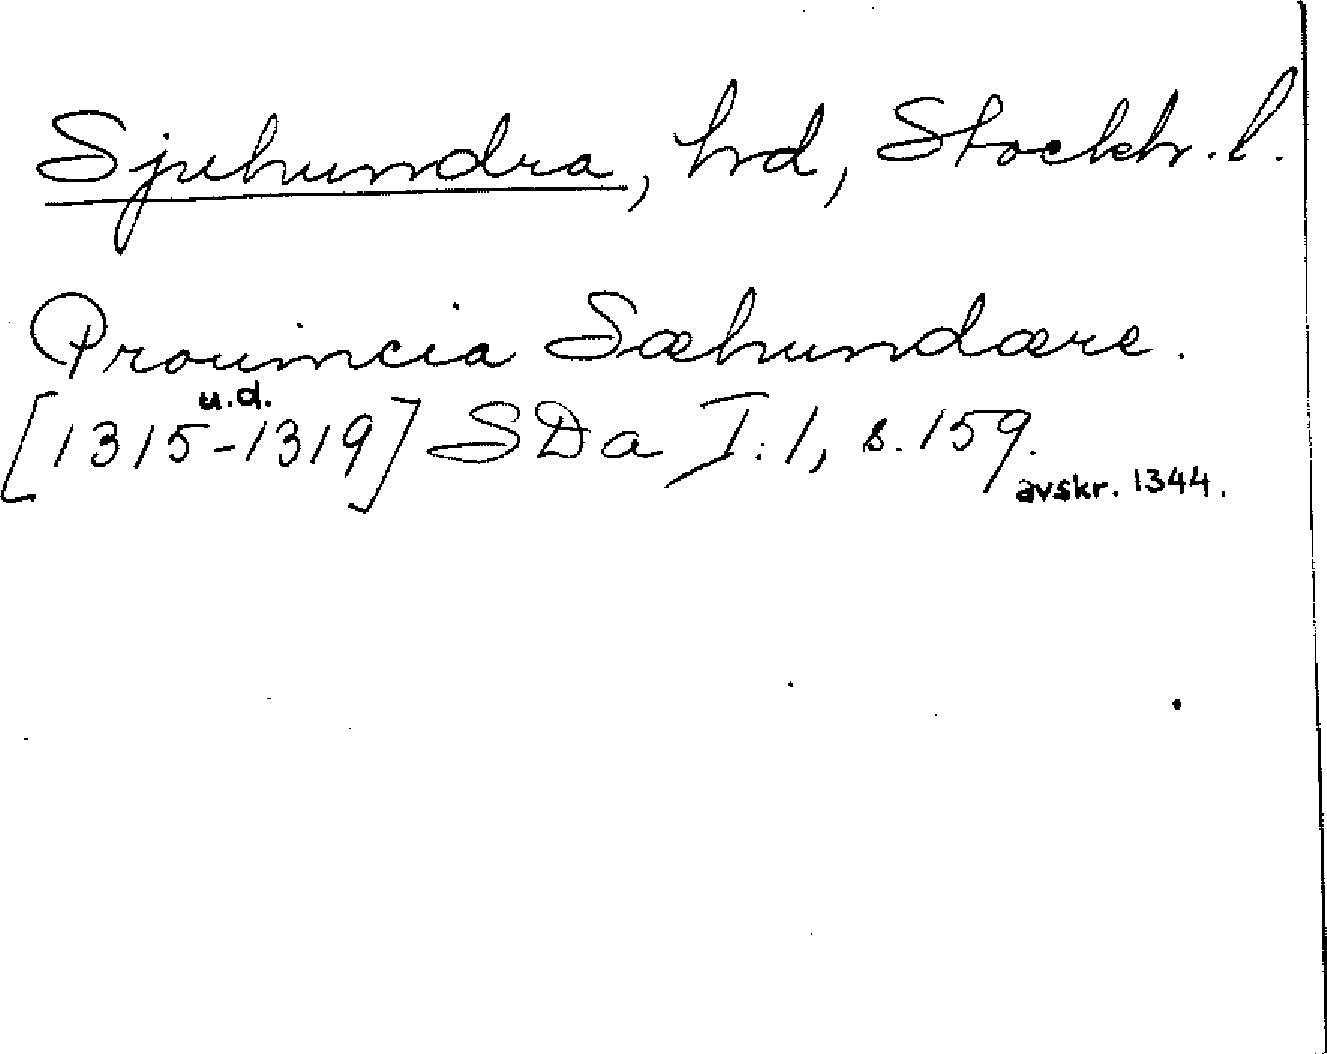 Sjuhundra, hd, Stockh. l.
Prouincia Sæhundære.
u.d.
[1315-1319] SDa I:1, s. 159.
avskr. 1344.